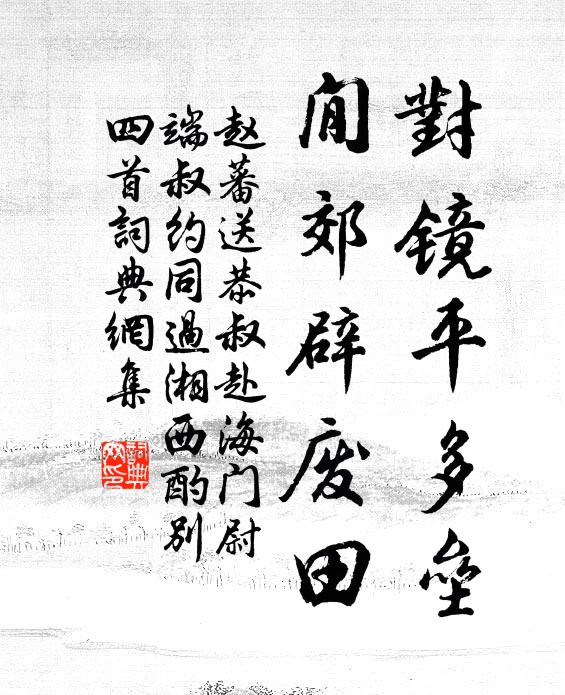 對镜平多垒
閒郊辟废田
赵蕃送恭叔赴海门尉
端叔约同過湘西酌别
四首詞典網集
詞典